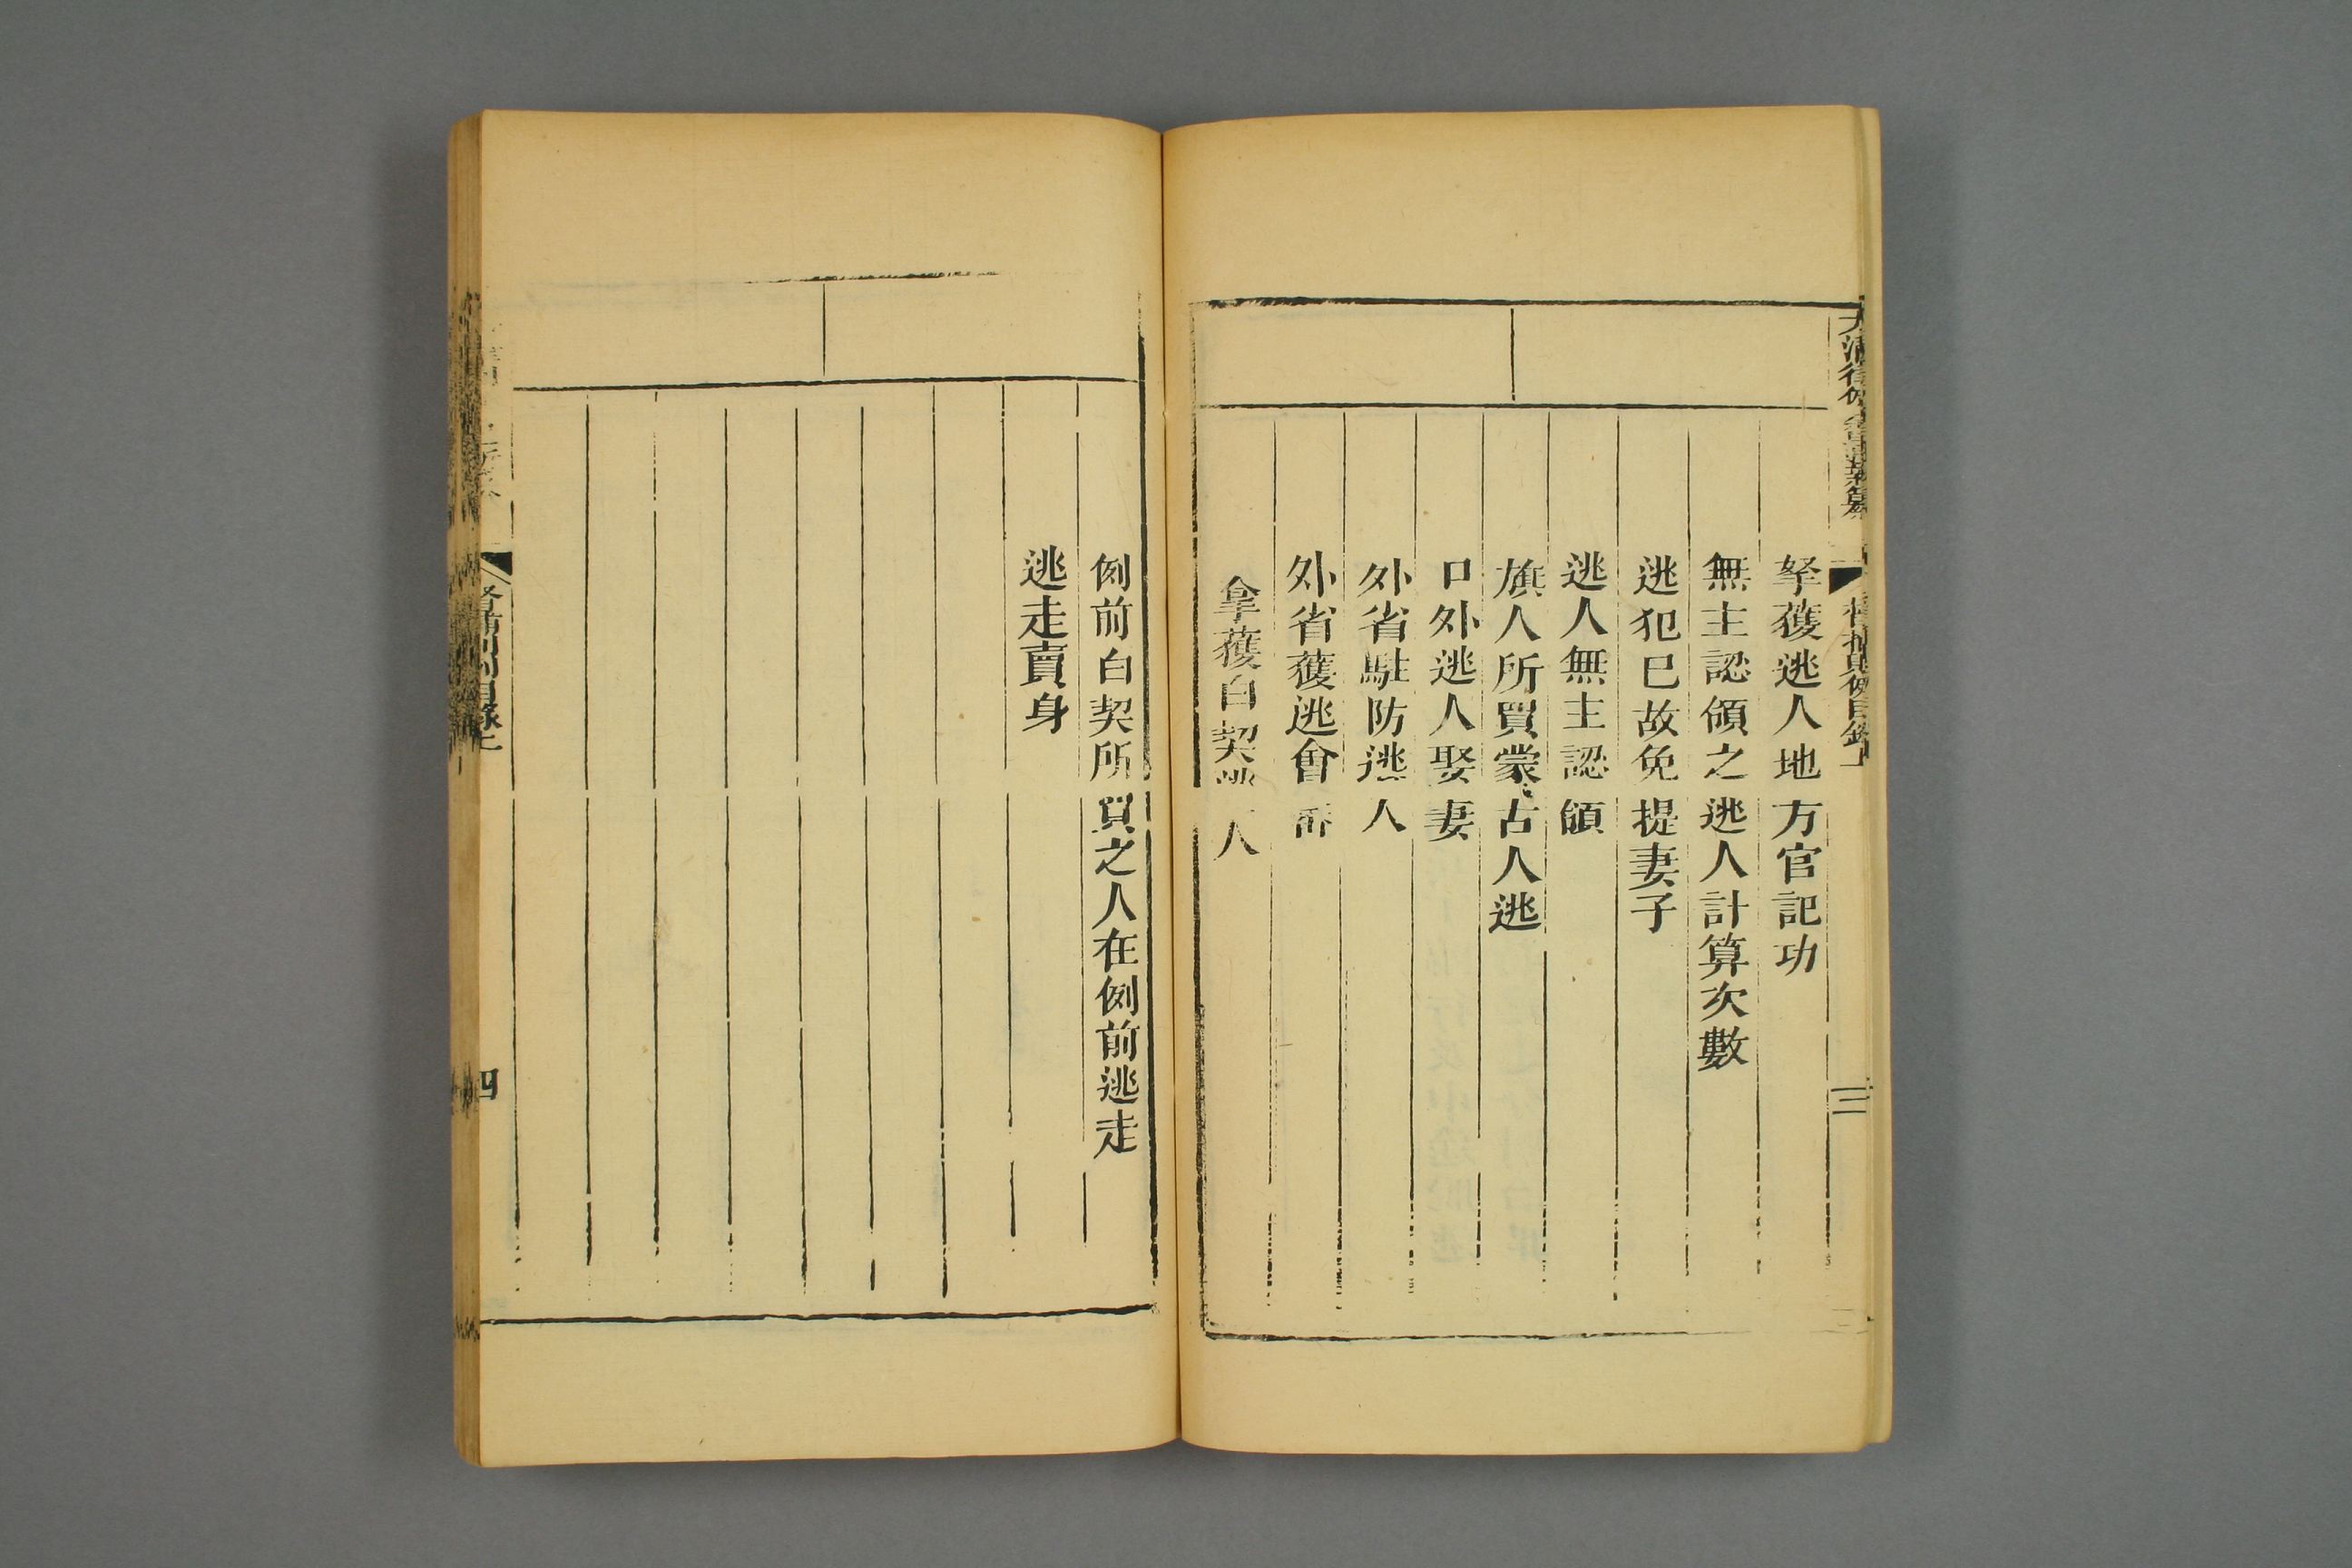 督捕則例目錄上
三
拏獲逃人地方官記功
無主認領之逃人計算次數
逃犯已故免提妻子
逃人無主認領
旗人所買蒙古人逃
口外逃人娶妻
外省駐防逃人
外省獲逃會
拿獲白契逃人
例前白契所買之人在例前逃走
逃走賣身
督捕則例目錄上
四